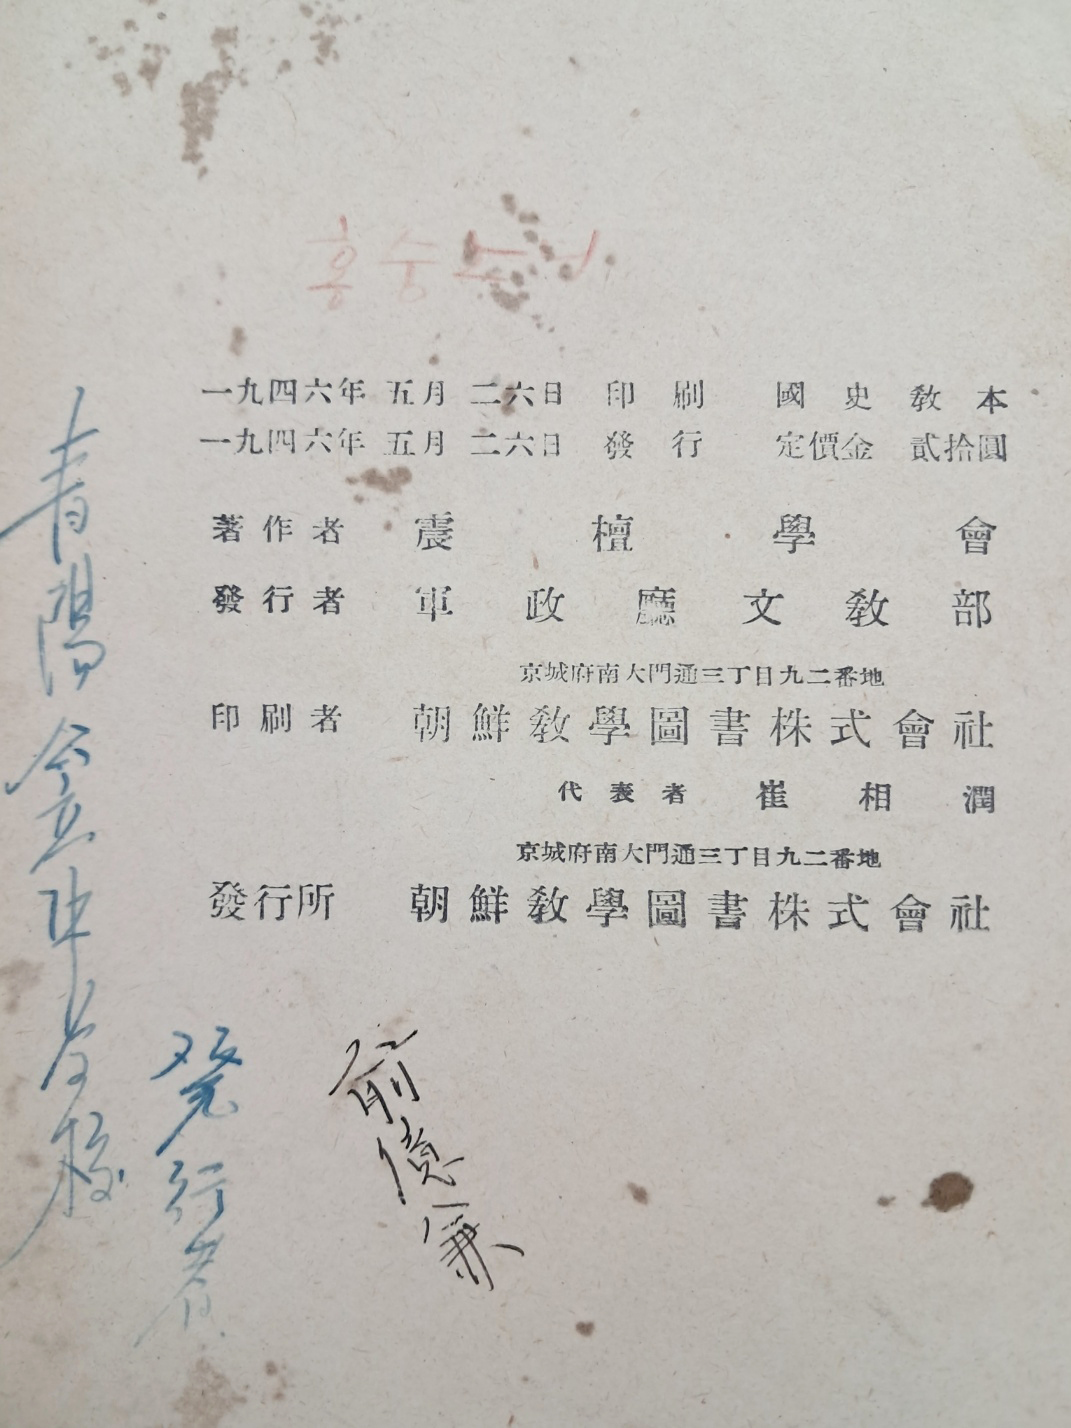 홍승
一九四六年 五月 二六日 印刷 國史敎本
一九四六年 五月 二六日 發行 定價金 貳拾圓
著作者 震檀學會
發行者 軍政廳文敎部
京城府南大門通三丁目九二番地
印刷者 朝鮮敎學圖書株式會社
代表者 崔相潤
京城府南大門通三丁目九二番地
發行所 朝鮮敎學圖書株式會社
靑陽公立中學校
発行者
俞億兼